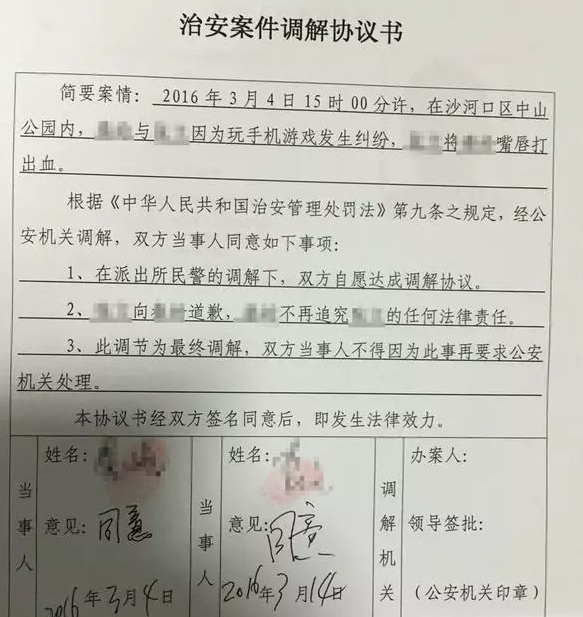 治安案件调解协议书
简要案情：2016年3月4日15时00分许，在沙河口区中山
公园内，与因为玩手机游戏发生纠纷，将嘴唇打
出血。
根据《中华人民共和国治安管理处罚法》第九条之规定，经公
安机关调解，双方当事人同意如下事项：
1、在派出所民警的调解下，双方自愿达成调解协议。
2、向道歉，不再追究的任何法律责任。
3、此调节为最终调解，双方当事人不得因为此事再要求公安
机关处理。
本协议书经双方签名同意后，即发生法律效力。
当事人
姓名：
意见：同意
2016年3月4日
当事人
姓名：
意见：同意
2016年3月14日
调解机关
办案人：
领导签批：
（公安机关印章）